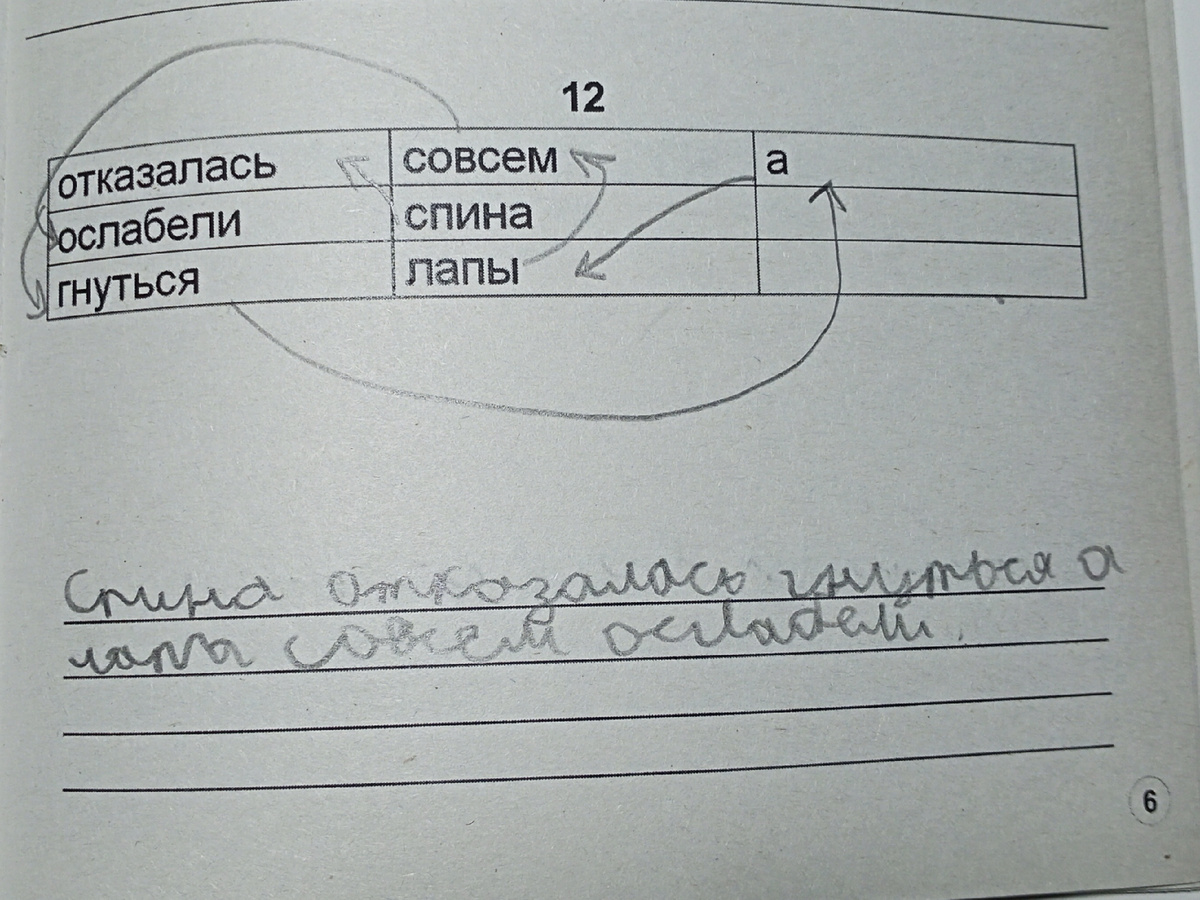 12
отказалась совсем а
ослабели спина
гнуться лапы
Спина отказалась гнуться а
лапы совсем ослабели.
6